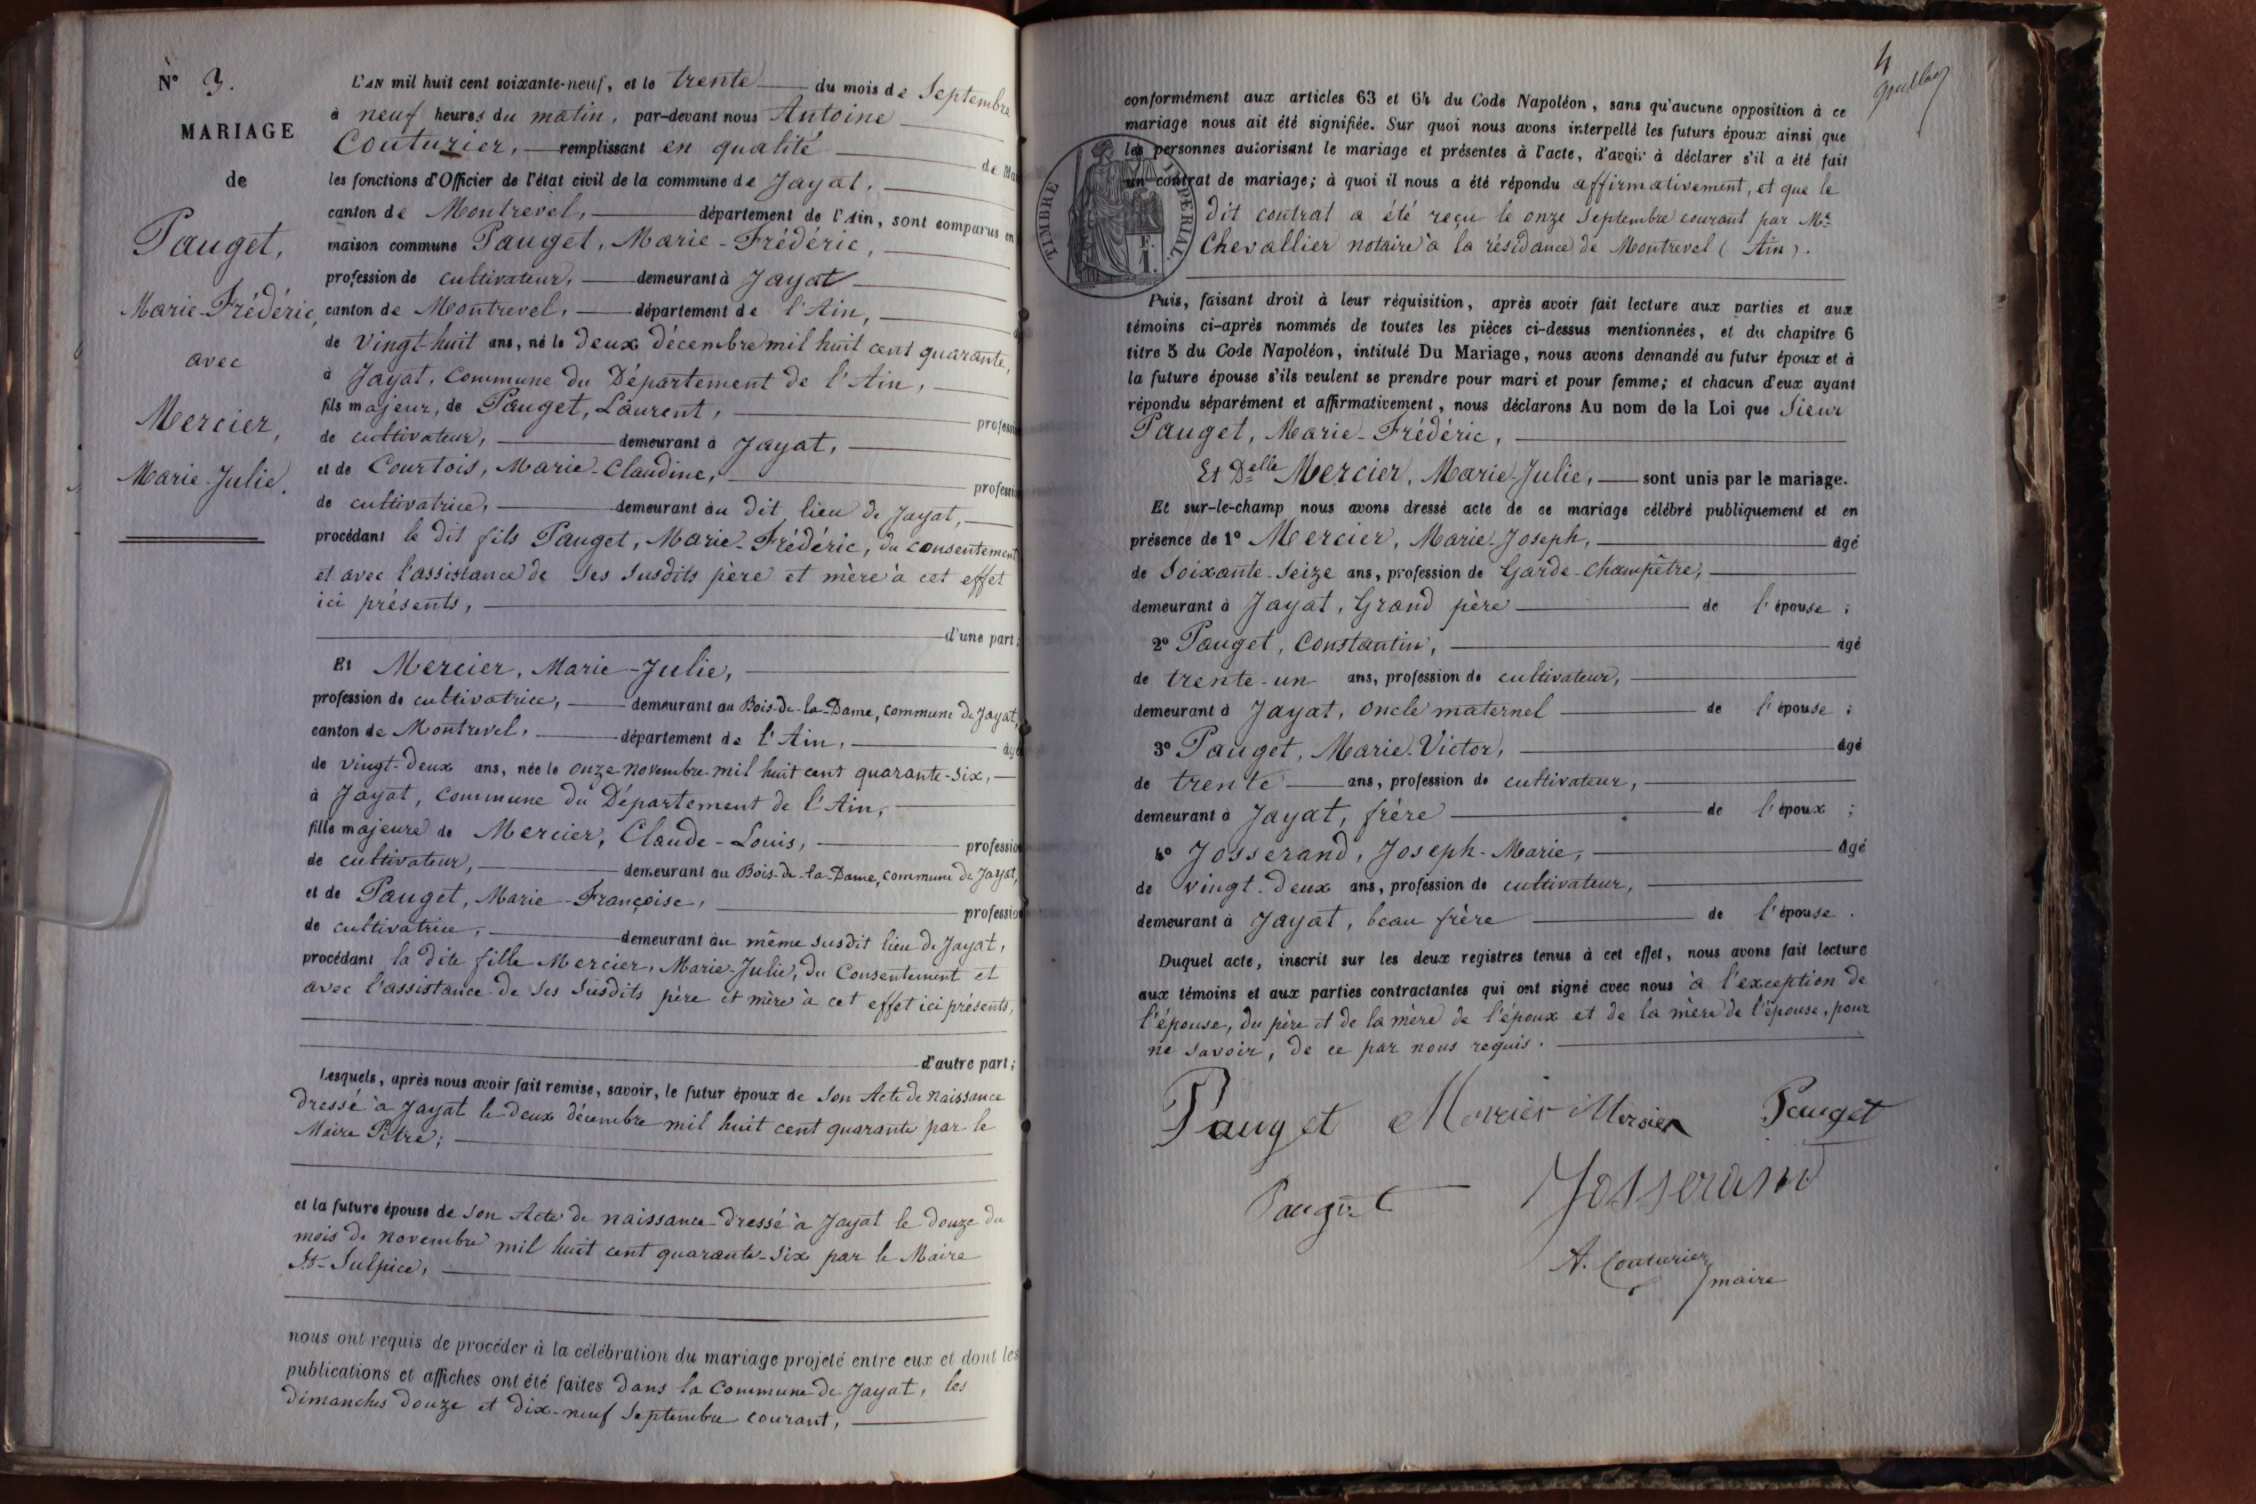 N° 3.
MARIAGE
de
Pauget,
Marie-Frédéric,
avec
Mercier,
Marie-Julie.
L'AN mil huit cent soixante-neuf, et le trente du mois de Septembre
à neuf heures du matin, par-devant nous Antoine
Couturier, remplissant en qualité de Ma
les fonctions d'Officier de l'état civil de la commune de Jayat,
canton de Montrevel, département de l'Ain, sont comparus en
maison commune Pauget, Marie-Frédéric,
profession de cultivateur, demeurant à Jayat
canton de Montrevel, département de l'Ain,
de vingt-huit ans, né le deux décembre mil huit cent quarante,
à Jayat, commune du Département de l'Ain,
fils majeur, de Pauget, Laurent, profession
de cultivateur, demeurant à Jayat,
et de Courtois, Marie-Claudine, profession
de cultivatrice, demeurant au dit lieu de Jayat,
procédant le dit fils Pauget, Marie-Frédéric, du consentement
et avec l'assistance de ses susdits père et mère à cet effet
ici présents,
d'une part;
Et Mercier, Marie-Julie,
profession de cultivatrice, demeurant au Bois-de-la-Dame, commune de Jayat,
canton de Montrevel, département de l'Ain, âgé
de vingt-deux ans, née le onze novembre mil huit cent quarante-six,
à Jayat, commune du Département de l'Ain,
fille majeure de Mercier, Claude-Louis, profession
de cultivateur, demeurant au Bois-de-la-Dame, commune de Jayat,
et de Pauget, Marie-Françoise, profession
de cultivatrice, demeurant au même susdit lieu de Jayat,
procédant la dite fille Mercier, Marie-Julie, du Consentement et
avec l'assistance de ses susdits père et mère à cet effet ici présents,
d'autre part;
Lesquels, après nous avoir fait remise, savoir, le futur époux de son Acte de naissance
dressé à Jayat le deux décembre mil huit cent quarante par le
Maire Pitre;
et la future épouse de son Acte de naissance dressé à Jayat le douze du
mois de novembre mil huit cent quarante-six par le Maire
St-Sulpice,
nous ont requis de procéder à la célébration du mariage projeté entre eux et dont les
publications et affiches ont été faites dans la commune de Jayat, les
dimanches douze et dix-neuf septembre courant,
4
conformément aux articles 63 et 64 du Code Napoléon, sans qu'aucune opposition à ce
mariage nous ait été signifiée. Sur quoi nous avons interpellé les futurs époux ainsi que
les personnes autorisant le mariage et présentes à l'acte, d'avoir à déclarer s'il a été fait
un contrat de mariage; à quoi il nous a été répondu affirmativement, et que le
dit contrat a été reçu le onze septembre courant par Mr
Chevallier notaire à la résidance de Montrevel (Ain).
TIMBRE IMPÉRIAL
F.
1.
Puis, faisant droit à leur réquisition, après avoir fait lecture aux parties et aux
témoins ci-après nommés de toutes les pièces ci-dessus mentionnées, et du chapitre 6
titre 5 du Code Napoléon, intitulé Du Mariage, nous avons demandé au futur époux et à
la future épouse s'ils veulent se prendre pour mari et pour femme; et chacun d'eux ayant
répondu séparément et affirmativement, nous déclarons Au nom de la Loi que Sieur
Pauget, Marie-Frédéric,
Et Delle Mercier, Marie-Julie, sont unis par le mariage.
Et sur-le-champ nous avons dressé acte de ce mariage célébré publiquement et en
présence de 1° Mercier, Marie-Joseph, âgé
de soixante-seize ans, profession de Garde-champêtre,
demeurant à Jayat, Grand père de l'épouse;
2° Pauget, Constantin, âgé
de trente-un ans, profession de cultivateur,
demeurant à Jayat, oncle maternel de l'épouse;
3° Pauget, Marie-Victor, âgé
de trente ans, profession de cultivateur,
demeurant à Jayat, frère de l'époux;
4° Josserand, Joseph-Marie, âgé
de vingt-deux ans, profession de cultivateur,
demeurant à Jayat, beau frère de l'épouse.
Duquel acte, inscrit sur les deux registres tenus à cet effet, nous avons fait lecture
aux témoins et aux parties contractantes qui ont signé avec nous à l'exception de
l'épouse, du père et de la mère de l'époux et de la mère de l'épouse, pour
ne savoir, de ce par nous requis.
Pauget Mercier Mersier Pauget
Pauget Josserand
A. Couturier
maire